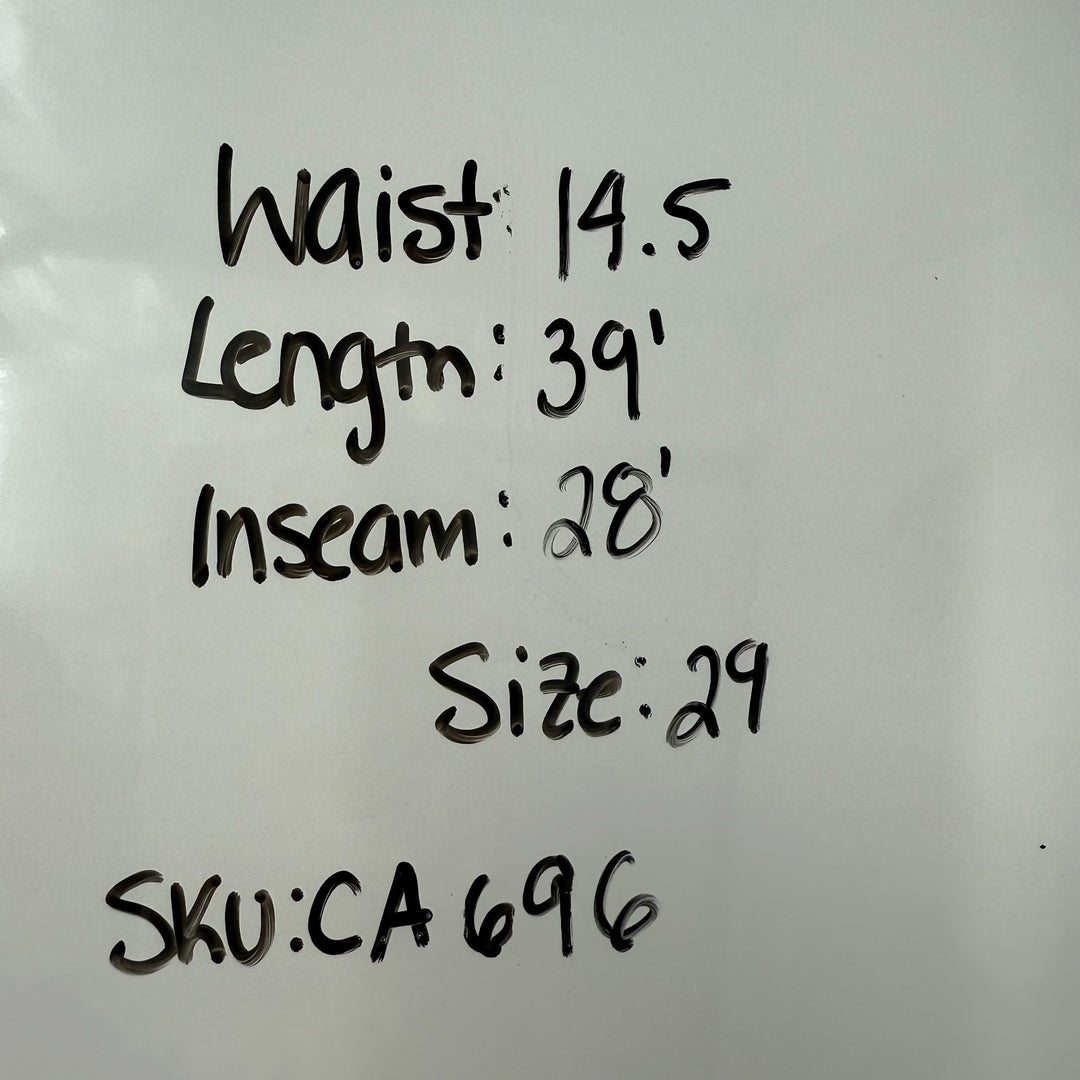 Waist: 14.5
Length: 39'
Inseam: 28'
Size: 29
SKU: CA 696